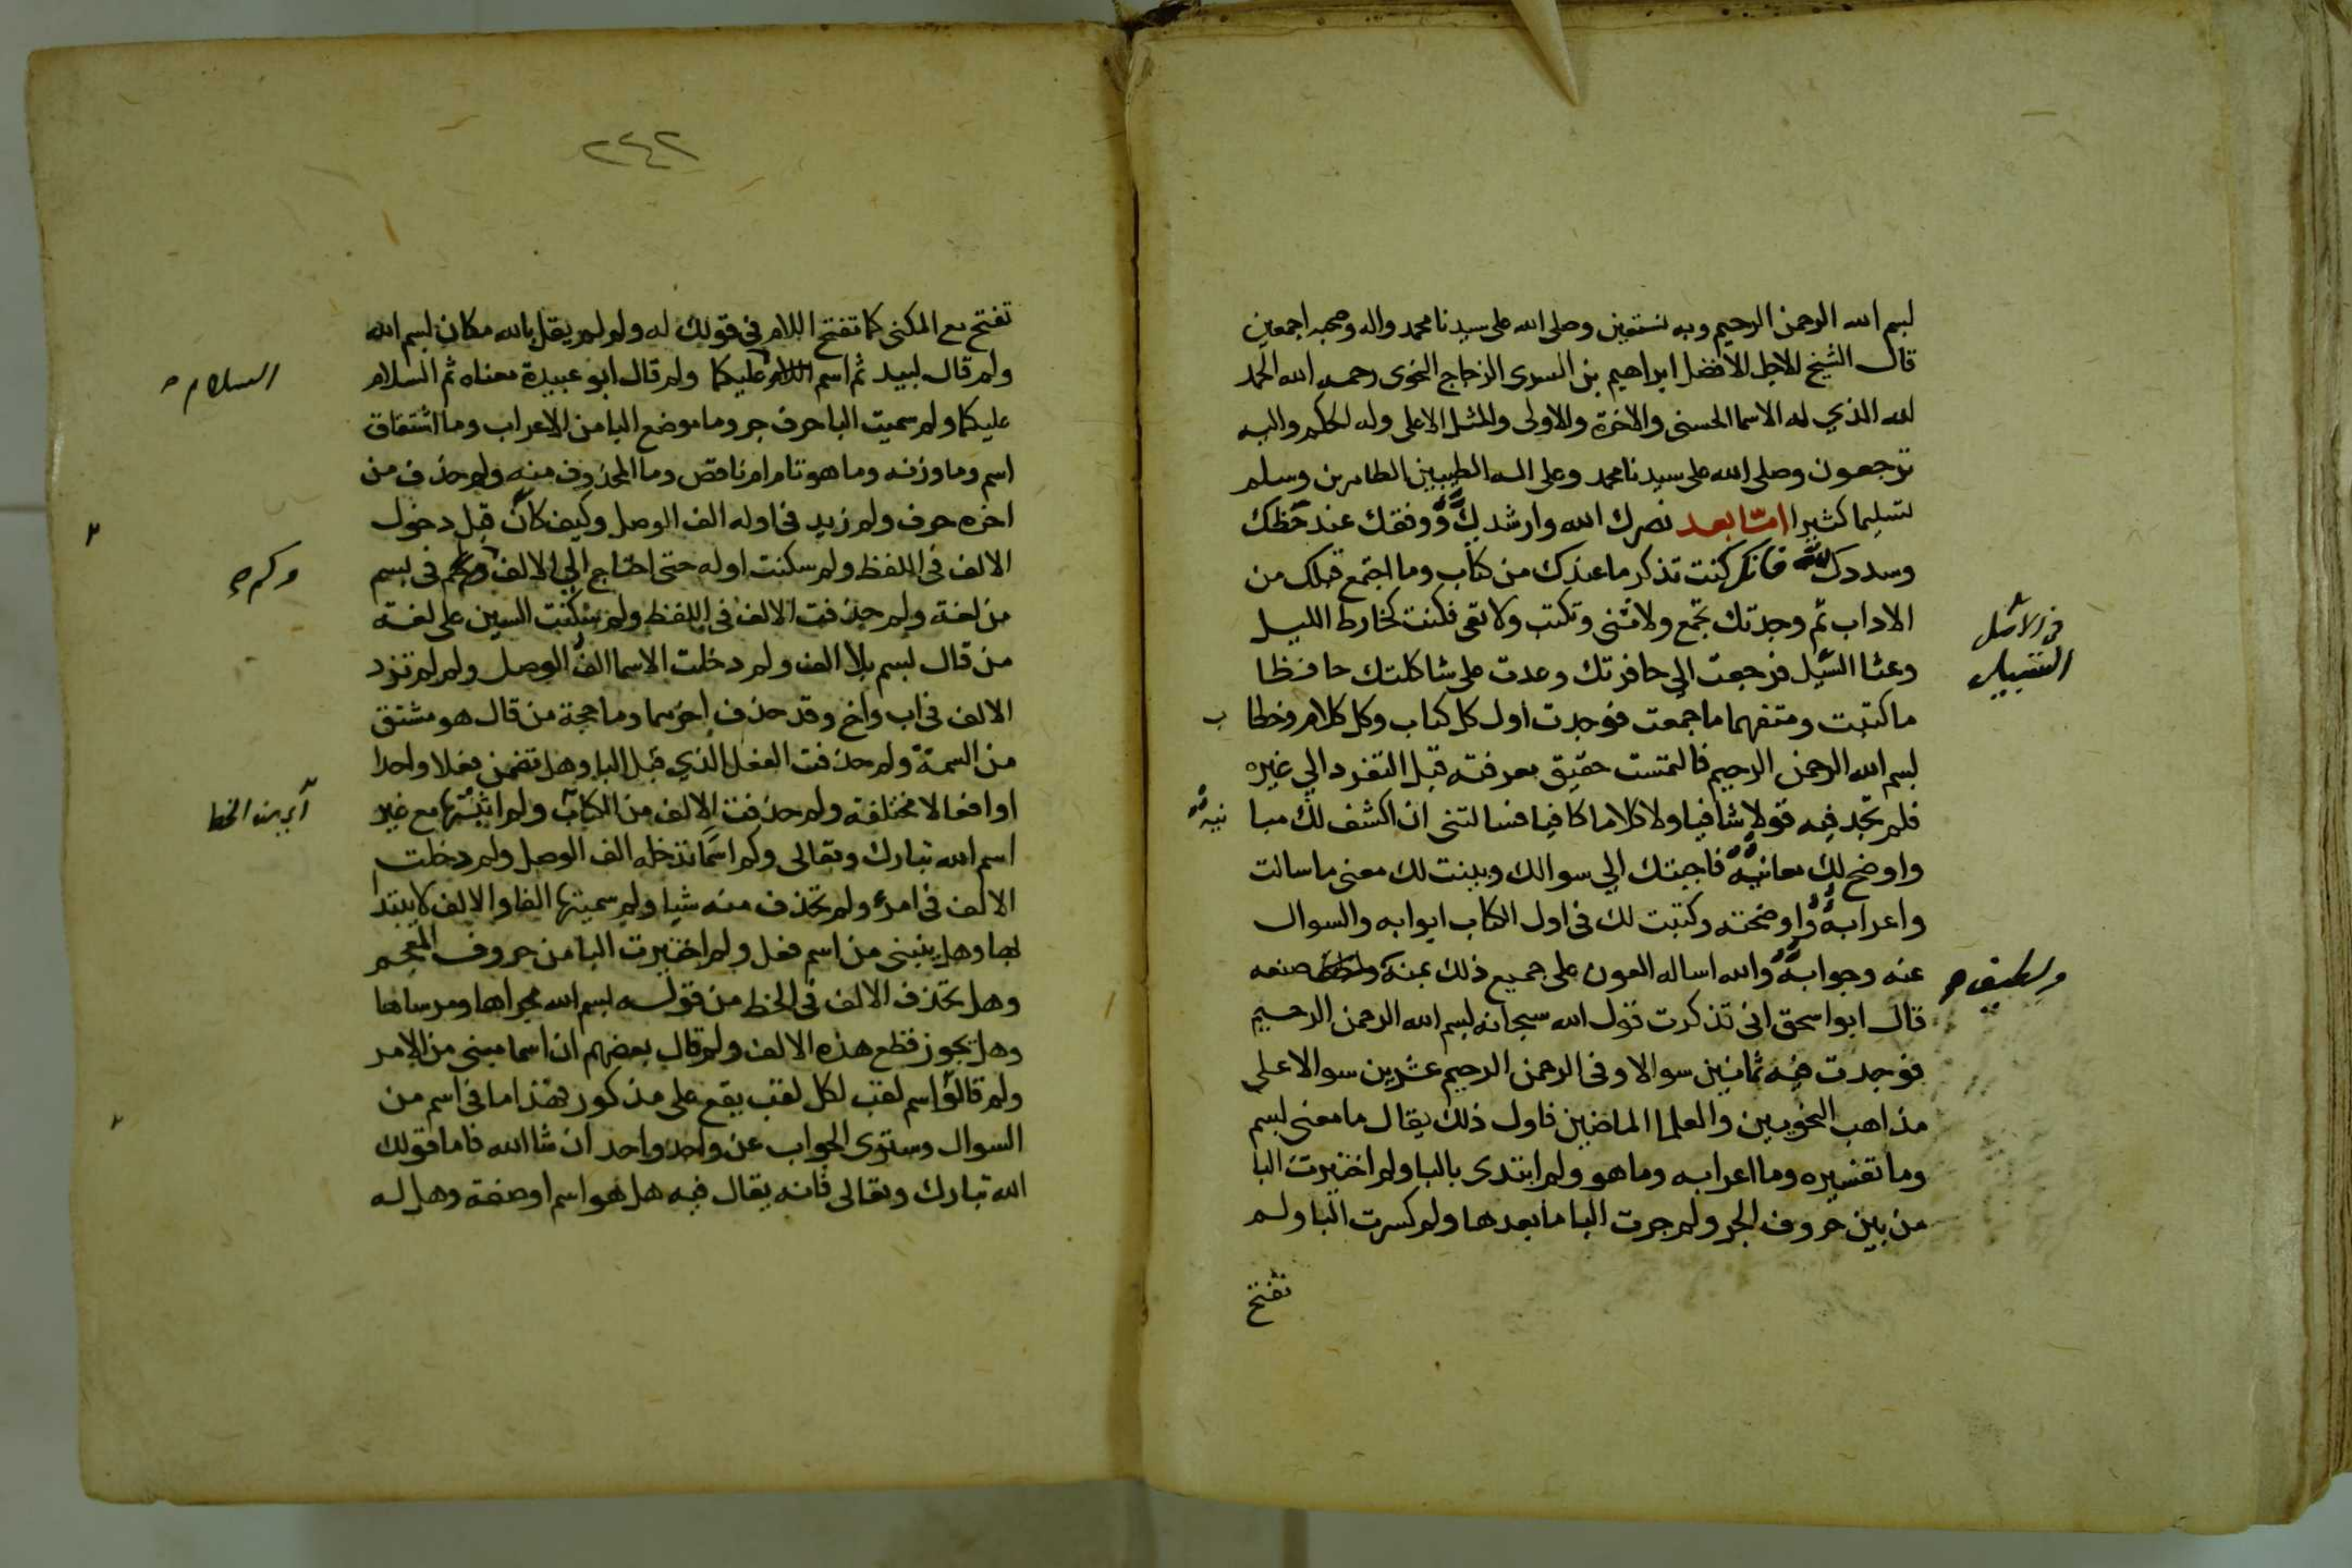 بسم الله الرحمن الرحيم وبه نستعين وصلى الله على سيدنا محمد واله وصحبه اجمعين
قال الشيخ الاجل الافضل ابراهيم بن السرى الزجاج النحوى رحمه الله الحمد
لله الذي له الاسما الحسنى والاخرة والاولى والمثل الاعلى وله الحكم واليه
ترجعون وصلى الله على سيدنا محمد وعلى اله الطيبين الطاهرين وسلم
تسليما كثيرا امّا بعد نصرك الله وارشدك ووفقك عند حظك
وسددك فانك كنت تذكر ما عندك من كتاب وما اجتمع قبلك من
الاداب ثم وجدتك تجمع ولا تثنى وتكتب ولا تعى فكنت كخارط الليل
وعثا السيل فرجعت الي حافرتك وعدت على شاكلتك حافظا
ما كتبت ومتفهما ما جمعت فوجدت اول كل كتاب وكل كلام وخطا
بسم الله الرحمن الرحيم فالتمست حقيق معرفته قبل التفرد الي غيره
فلم تجد فيه قولا شافيا ولا كلاما كافيا فسالتنى ان اكشف لك مبا
نيه
واوضح لك معانيه فاجبتك الي سوالك وبينت لك معنى ما سالت
واعرابه واوضحته وكتبت لك فى اول الكتاب ابوابه والسوال
عنه وجوابه والله اساله العون على جميع ذلك بمنه صنعه
قال ابو اسحق انى تذكرت قول الله سبحانه بسم الله الرحمن الرحيم
فوجدت فيه ثمانين سوالا وفى الرحمن الرحيم عشرين سوالا على
مذاهب النحويين والعلما الماضين فاول ذلك يقال ما معنى بسم
وما تفسيره وما اعرابه وما هو ولم ابتدى بالبا ولم اختيرت البا
من بين حروف الجر ولم جرت البا ما بعدها ولم كسرت البا ولم
تفتح
٢٤٢
تفتح مع المكنى كما تفتح اللام فى قولك له ولو لم يقل بالله مكان بسم الله
ولم قال لبيد ثم اسم السلام عليكما ولم قال ابو عبيدة معناه ثم السلام
السلام
عليكما ولم سميت البا حرف جر وما موضع البا من الاعراب وما اشتقاق
اسم وما وزنه وما هو تام ام ناقص وما المحذوف منه ولم حذف من
اخره حرف ولم زيد فى اوله الف الوصل وكيف كان قبل دخول
الالف فى اللفظ ولم سكنت اوله حتى احتاج الي الالف وكم فى بسم
وكم
من لغة ولم حذفت الالف فى اللفظ ولم سكنت السين على لغة
من قال بسم بلا الف ولم دخلت الاسما الف الوصل ولم لم تزد
الالف فى اب واخ وقد حذف اخرهما وما حجة من قال هو مشتق
من السمة ولم حذفت الفعل الذي قبل البا وهل تضمن فعلا واحدا
او افعالا مختلفة ولم حذفت الالف من الكتاب ولم اثبتها مع غير
اسم الله تبارك وتعالى وكم اسما تدخله الف الوصل ولم دخلت
الالف فى امرء ولم تحذف منه شيا ولم سميتها الفا والالف لا يبتدا
بها وهل ينبنى من اسم فعل ولم اختيرت البا من حروف المعجم
وهل تحذف الالف فى الخط من قوله بسم الله مجراها ومرساها
وهل يجوز قطع هذه الالف ولم قال بعضهم ان اسما مبنى من الامر
ولم قالوا اسم لقب لكل لقب يقع على مذكور فهذا ما فى اسم من
السوال وستوى الجواب عن واحد واحد ان شا الله فاما قولك
الله تبارك وتعالى فانه يقال فيه هل هو اسم او صفة وهل له